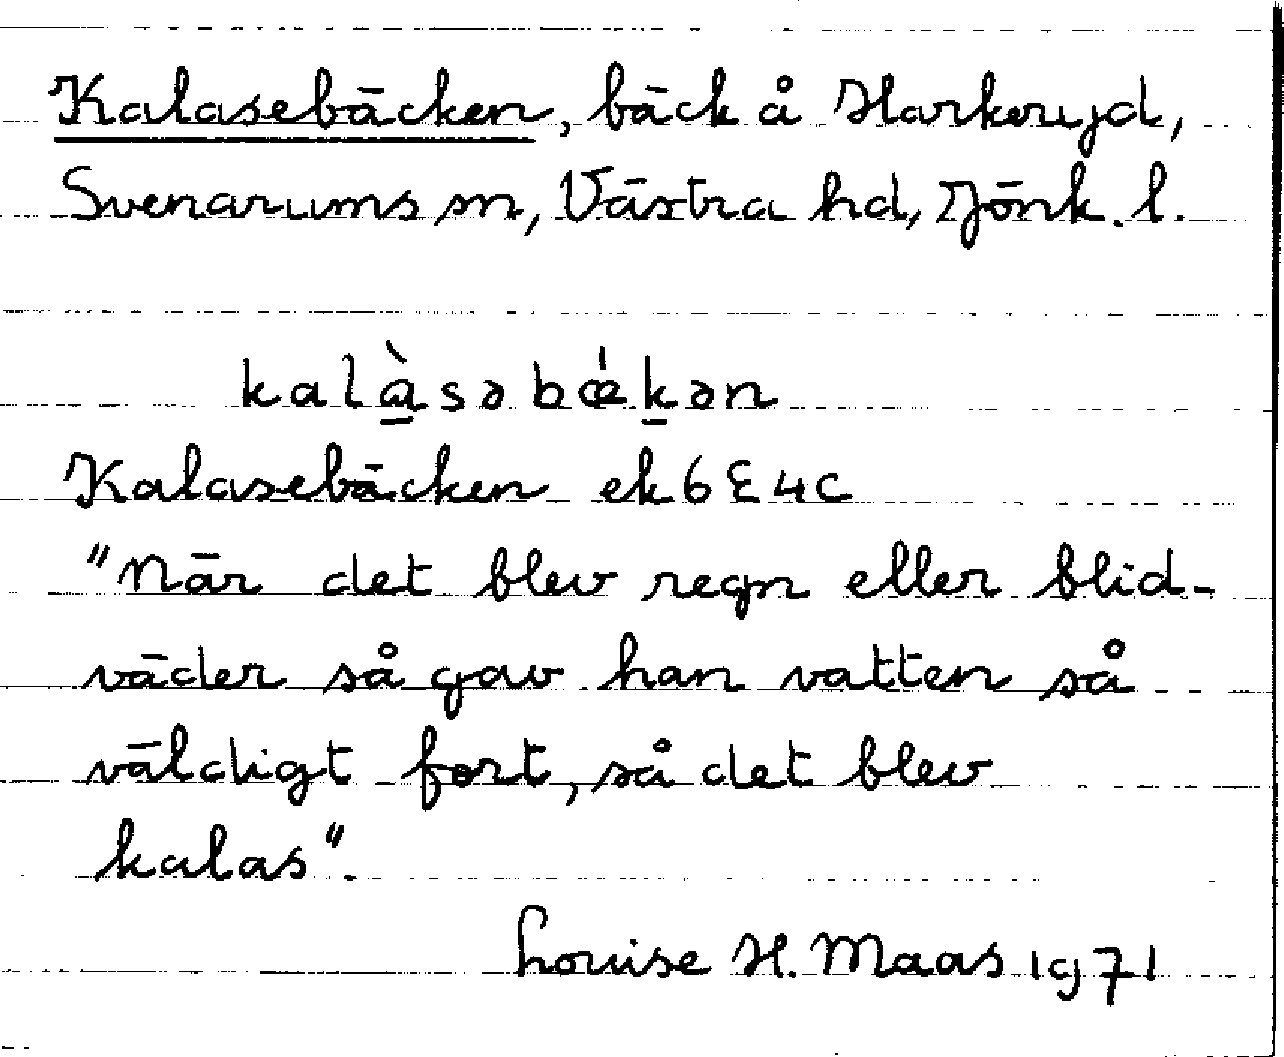 Kalasebäcken, bäck å Harkeryd,
Svenarums sn, Västra hd, Jönk. l.
kalàsəbœ́kən
Kalasebäcken ek 6E4c
"När det blev regn eller blid-
väder så gav han vatten så
väldigt fort, så det blev
kalas".
Louise H. Maas 1971